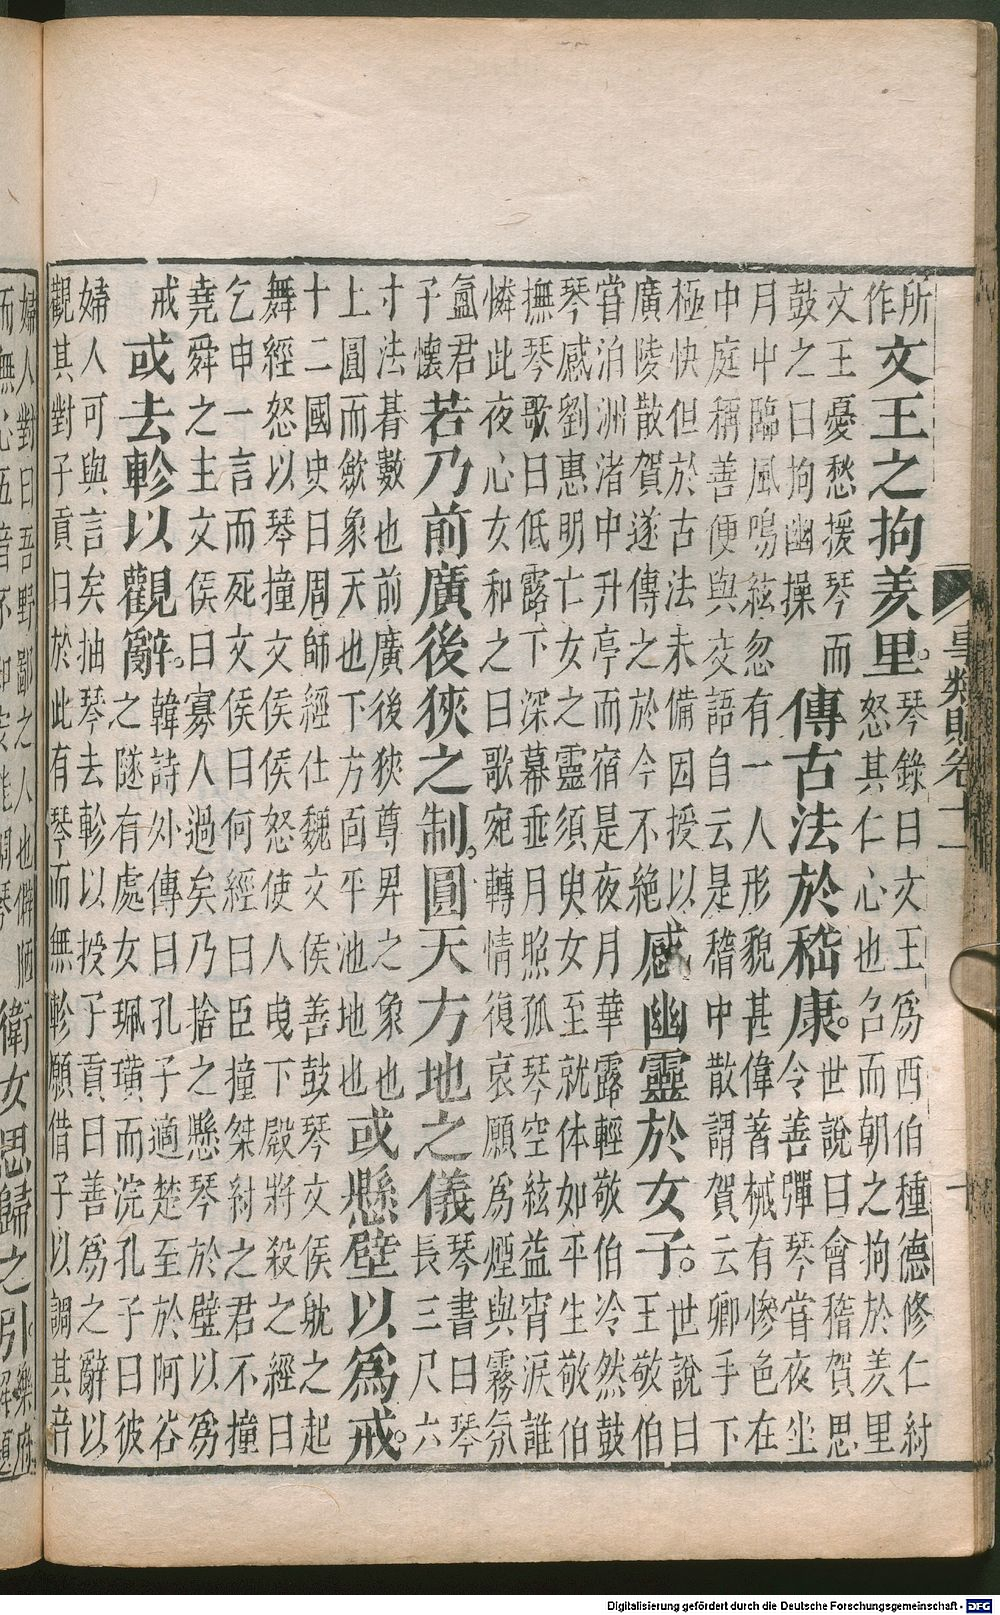 事類賦卷十一 十
所
作
文王之拘羑里。
琴錄曰文王為西伯種德修仁紂
怒其仁心也召而朝之拘於羑里
文王憂愁援琴而
鼓之曰拘幽操
傳古法於嵇康。
世說曰會稽賀思
令善彈琴嘗夜坐
月中臨風鳴絃忽有一人形貌甚偉著械有慘色在
中庭稱善便與交語自云是稽中散謂賀云卿手下
極快但於古法未備因授以
廣陵散賀遂傳之於今不絕
感幽靈於女子。
世說曰
王敬伯
嘗泊洲渚中升亭而宿是夜月華露輕敬伯泠然鼓
琴感劉惠明亡女之靈須臾女至就体如平生敬伯
撫琴歌曰低露下深幕垂月照孤琴空絃益宵淚誰
憐此夜心女和之曰歌宛轉情復哀願為煙與霧氛
氳君
子懷
若乃前廣後狹之制。圓天方地之儀
琴書曰琴
長三尺六
寸法朞數也前廣後狹尊卑之象也
上圓而斂象天也下方面平池地也
或懸壁以為戒。
十二國史曰周師經仕魏文侯善鼓琴文侯躭之起
舞經怒以琴撞文侯侯怒使人曳下殿將殺之經曰
乞申一言而死文侯曰何經曰臣撞桀紂之君不撞
堯舜之主文侯曰寡人過矣乃捨之懸琴於壁以為
戒
或去軫以觀辭。
韓詩外傳曰孔子適楚至於阿谷
之隧有處女珮璜而浣孔子曰彼
婦人可與言矣抽琴去軫以授子貢曰善為之辭以
觀其對子貢曰於此有琴而無軫願借子以調其音
婦人對曰吾野鄙之人也僻陋
而無心五音不知安能調琴
衛女思歸之引。
樂府
解題
Digitalisierung gefördert durch die Deutsche Forschungsgemeinschaft - DFG